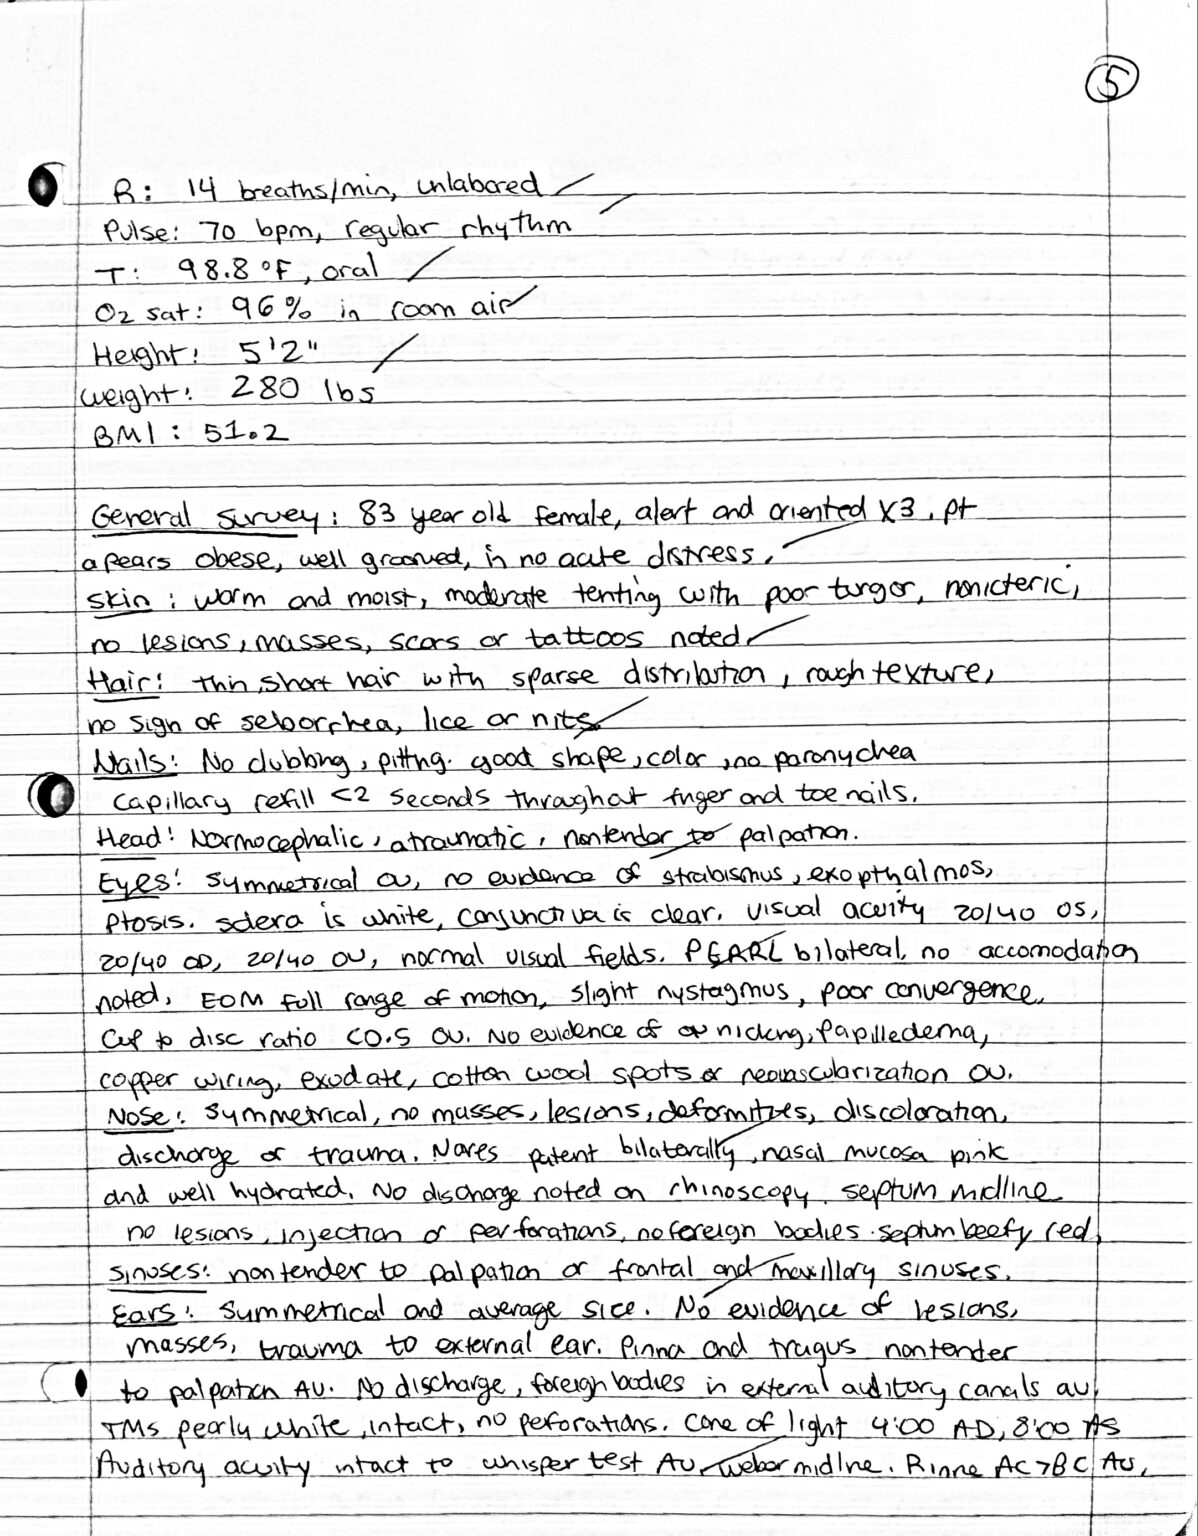 5
R: 14 breaths/min, unlabored
Pulse: 70 bpm, regular rhythm
T: 98.8 °F, oral
O2 sat: 96% in room air
Height: 5'2"
weight: 280 lbs
BMI: 51.2
General survey: 83 year old female, alert and oriented x3. pt
apears obese, well groomed, in no acute distress.
Skin: warm and moist, moderate tenting with poor turgor, nonicteric,
no lesions, masses, scars or tattoos noted
Hair: thin, short hair with sparse distribution, rough texture,
no sign of seborrhea, lice or nits
Nails: No clubbing, pitting. good shape, color, no paronychea
capillary refill <2 seconds throughout finger and toe nails.
Head: Normocephalic, atraumatic, nontender to palpation.
Eyes: Symmetrical OU, no evidence of strabismus, exopthalmos,
Ptosis. sclera is white, conjunctiva is clear. visual acuity 20/40 OS,
20/40 OD, 20/40 OU, normal visual fields. PEARL bilateral, no accomodation
noted, EOM full range of motion, slight nystagmus, poor convergence.
Cup to disc ratio <0.5 OU. No evidence of av nicking, Papilledema,
copper wiring, exudate, cotton wool spots or neovascularization OU.
Nose: Symmetrical, no masses, lesions, deformities, discoloration,
discharge or trauma. Nares patent bilaterally, nasal mucosa pink
and well hydrated. No discharge noted on rhinoscopy. septum midline
no lesions, injection or perforations, no foreign bodies. septum beefy red.
Sinuses: nontender to palpation or frontal and maxillary sinuses.
Ears: Symmetrical and average sice. No evidence of lesions,
masses, trauma to external ear. Pinna and tragus nontender
to palpation AU. No discharge, foreign bodies in external auditory canals au,
TMs pearly white, intact, no perforations. Cone of light 4:00 AD, 8:00 AS
Auditory acuity intact to whisper test AU, weber midline. Rinne AC>BC AU,